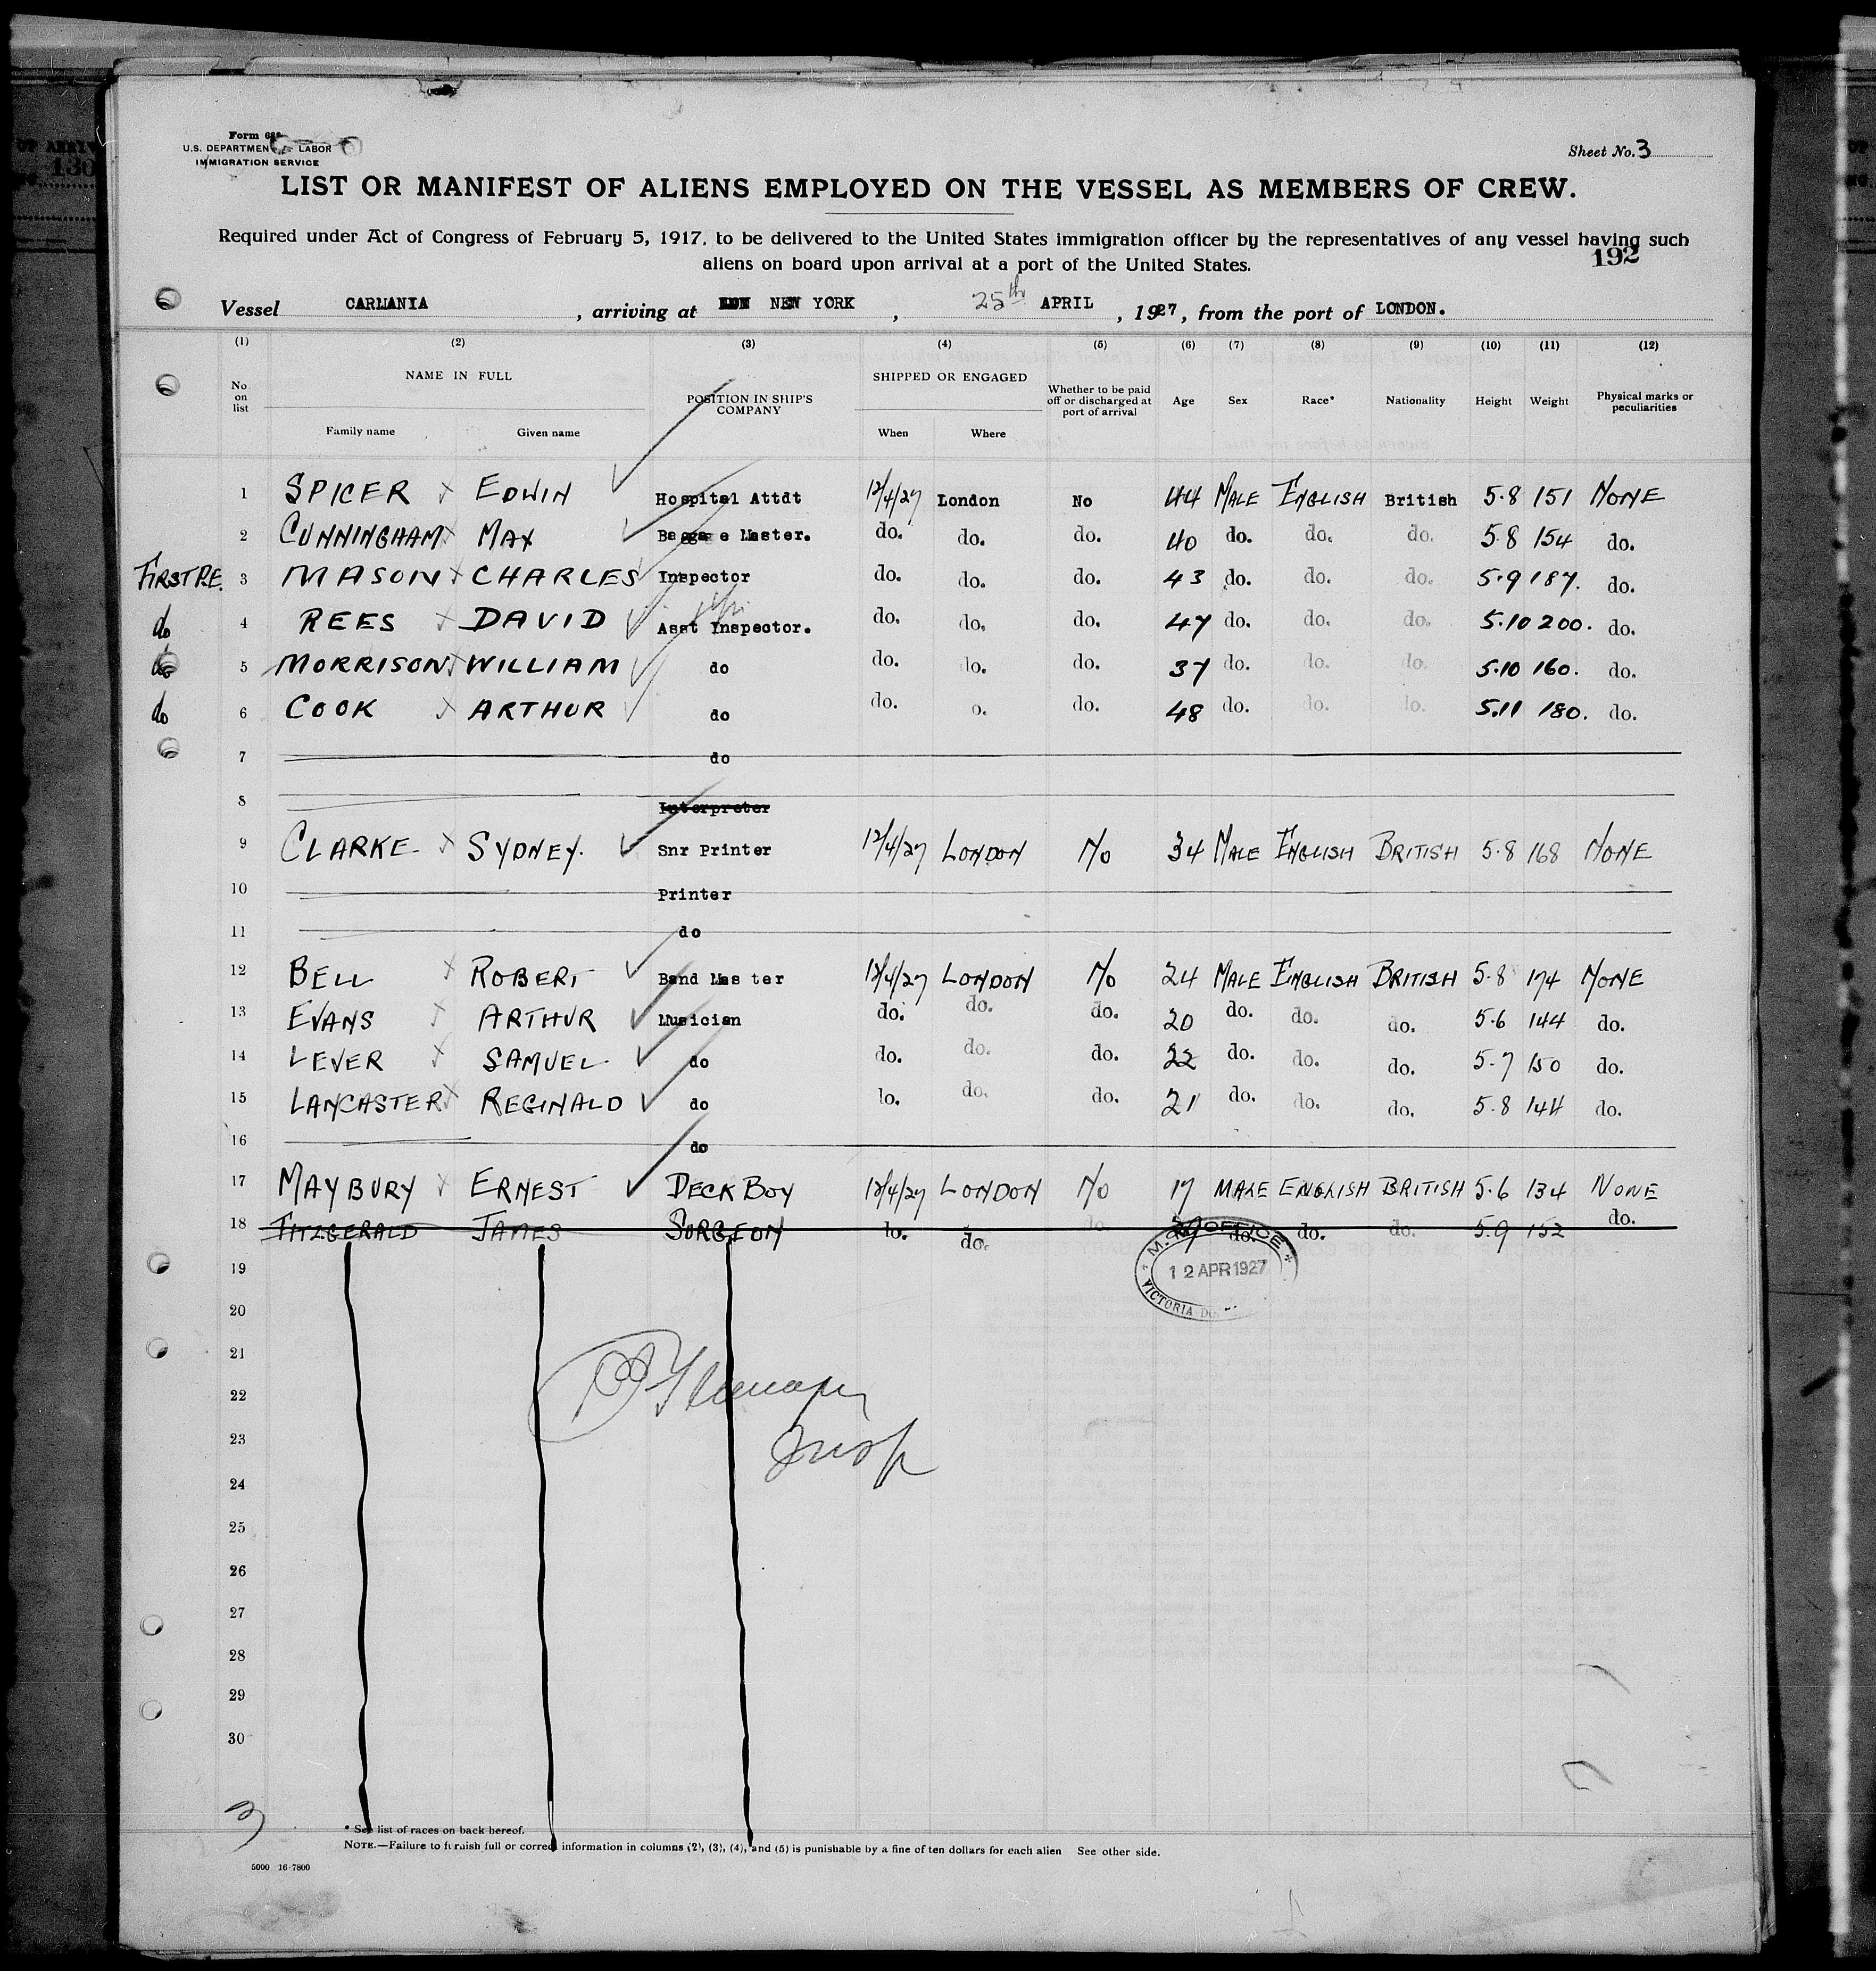 Form 689
U.S. DEPARTMENT LABOR
IMMIGRATION SERVICE
Sheet No. 3
LIST OR MANIFEST OF ALIENS EMPLOYED ON THE VESSEL AS MEMBERS OF CREW.
Required under Act of Congress of February 5, 1917, to be delivered to the United States immigration officer by the representatives of any vessel having such
aliens on board upon arrival at a port of the United States.
192
Vessel CARMANIA , arriving at NEW YORK , 25th APRIL , 1927, from the port of LONDON.
(1) (2) (3) (4) (5) (6) (7) (8) (9) (10) (11) (12)
No. on list NAME IN FULL POSITION IN SHIP'S COMPANY SHIPPED OR ENGAGED Whether to be paid off or discharged at port of arrival Age Sex Race* Nationality Height Weight Physical marks or peculiarities
Family name Given name When Where
1 SPICER EDWIN Hospital Attdt 12/4/27 London No 44 MALE ENGLISH British 5.8 151 NONE
2 CUNNINGHAM MAX Baggage Master. do. do. do. 40 do. do. do. 5.8 154 do.
FIRST P.E. 3 MASON CHARLES Inspector do. do. do. 43 do. do. do. 5.9 187. do.
do 4 REES DAVID Asst Inspector. do. do. do. 47 do. do. do. 5.10 200. do.
do 5 MORRISON WILLIAM do do. do. do. 37 do. do. do. 5.10 160. do.
do 6 COOK ARTHUR do do. o. do. 48 do. do. lo. 5.11 180. do.
7 do
8 Interpreter
9 CLARKE SYDNEY. Snr Printer 12/4/27 LONDON No 34 MALE ENGLISH BRITISH 5.8 168 NONE
10 Printer
11 do
12 BELL ROBERT Band Mas ter 12/4/27 LONDON No 24 MALE ENGLISH BRITISH 5.8 174 NONE
13 EVANS ARTHUR Musician do. do. do. 20 do. do. do. 5.6 144 do.
14 LEVER SAMUEL do do. do. do. 22 do. do. do. 5.7 150 do.
15 LANCASTER REGINALD do lo. do. do. 21 do. do. do. 5.8 144 do.
16 do
17 MAYBURY ERNEST DECK BOY 12/4/27 LONDON No 17 MALE ENGLISH BRITISH 5.6 134 NONE
18 FITZGERALD JAMES SURGEON lo. do. do. do. do. do. 5.9 152 do.
M. M. OFFICE
12 APR 1927
VICTORIA DO
19
20
21
22
23
Insp
24
25
26
27
28
29
30
* See list of races on back hereof.
NOTE.—Failure to furnish full or correct information in columns (2), (3), (4), and (5) is punishable by a fine of ten dollars for each alien See other side.
5000 16-7800